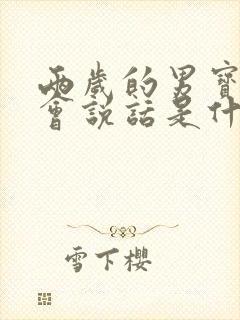 兩歲的男寶
會説話是什
雪下櫻